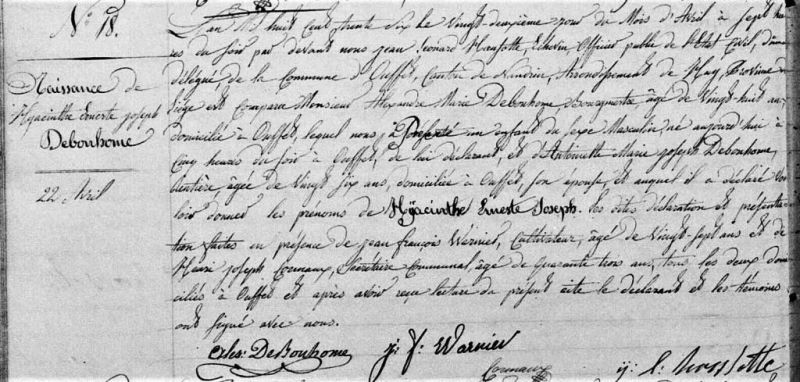 N° 18.
Naissance de
Hyacinthe Erneste joseph
Debonhome
22 Avril
L'an Mil huit Cent trente Six le Vingt-deuxième jour du Mois d'Avril à Sept heu
res du Soir par devant nous jean Leonard Echevin Officier public de l'Etat Civil, dûment
délégué, de la Commune d'Ouffet, Canton de Nandrin, Arrondissement de Huy, Province de
Liège est Comparu Monsieur Alexandre Marie Debonhome Bourgmestre, âgé de Vingt-huit ans
domicilié à Ouffet, lequel nous à Présenté un enfant du Sexe Masculin né aujourd'hui à
Cinq heures du Soir à Ouffet, de lui déclarant, et d'Antoinette Marie joseph Debonhome,
Rentière, âgée de Vingt Six ans, domiciliée à Ouffet, Son épouse, et auquel il a déclaré Vou
loir donner les prénoms de Hyacinthe Erneste Joseph. les dites déclaration et présenta
tion faites en présence de jean françois Warnier, Cultivateur, âgé de Vingt-Sept ans et de
Henri joseph Cornaux, Secrétaire Communal, âgé de quarante trois ans, tous les deux domi
ciliés à Ouffet et après avoir reçu lecture du présent acte le déclarant et les témoins
ont Signé avec nous.
DeBonhome j: f: Warnier
Cornaux j: l: